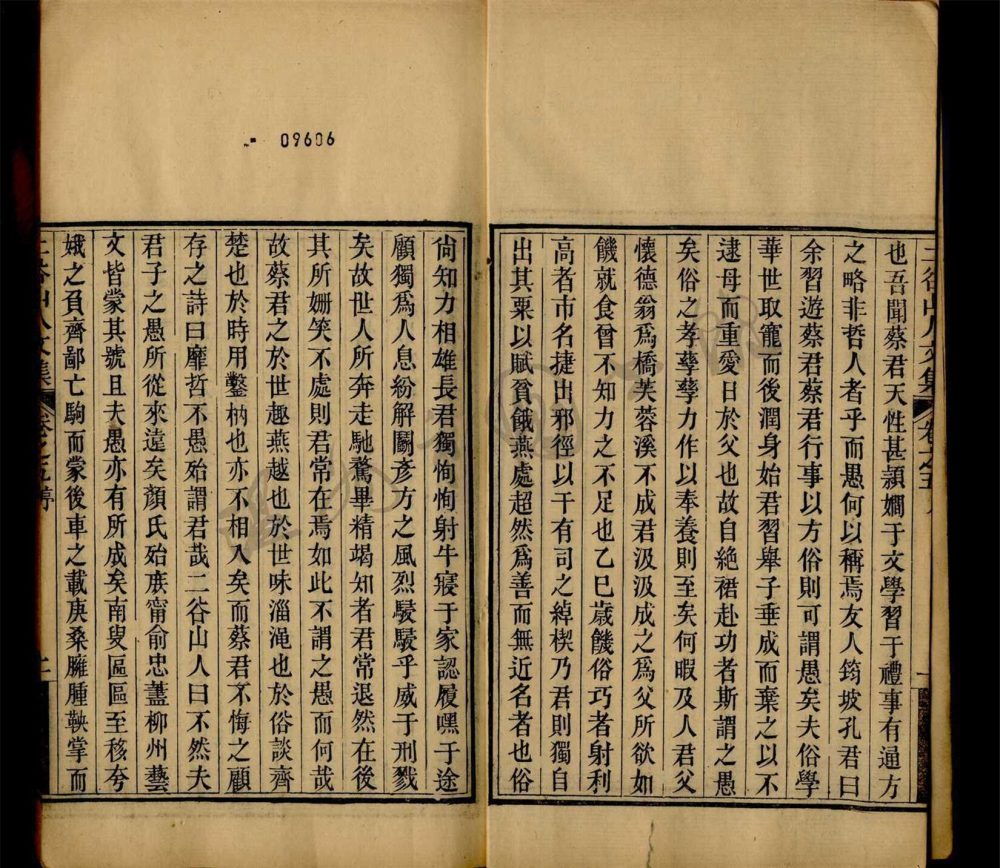 09606
也吾聞蔡君天性甚穎嫺于文學習于禮事有通方
之略非哲人者乎而愚何以稱焉友人筠坡孔君曰
余習遊蔡君蔡君行事以方俗則可謂愚矣夫俗學
華世取寵而後潤身始君習舉子垂成而棄之以不
逮母而重愛日於父也故自絶裾赴功者斯謂之愚
矣俗之孝孳孳力作以奉養則至矣何暇及人君父
懷德翁爲橋芙蓉溪不成君汲汲成之爲父所欲如
饑就食曾不知力之不足也乙巳歲饑俗巧者射利
高者市名捷出邪徑以干有司之綽楔乃君則獨自
出其粟以賦貧餓燕處超然爲善而無近名者也俗
二谷山人文集
卷之五
尙知力相雄長君獨恂恂射牛寢于家認履嘿于途
顧獨爲人息紛解鬬彦方之風烈駸駸乎威于刑戮
矣故世人所奔走馳騖畢精竭知者君常退然在後
其所姍笑不處則君常在焉如此不謂之愚而何哉
故蔡君之於世趣燕越也於世味淄渑也於俗談齊
楚也於時用鑿枘也亦不相入矣而蔡君不悔之顧
存之詩曰靡哲不愚殆謂君哉二谷山人曰不然夫
君子之愚所從來遠矣顏氏殆庶甯俞忠藎柳州藝
文皆蒙其號且夫愚亦有所成矣南叟區區至移夸
娥之負齊鄙亡駒而蒙後車之載庚桑臃腫鞅掌而
二谷山人文集
卷之五
二